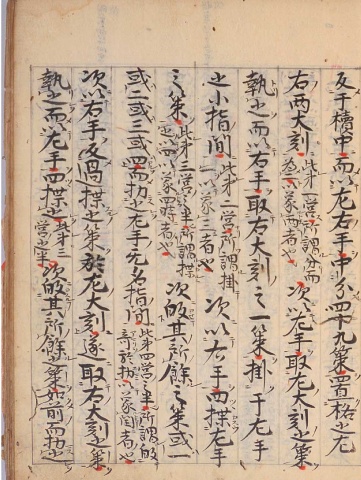 反于櫝中而以左右手中分四十九策置格之左
右兩大刻此第一營所謂分而為二以象兩者也次以左手取左大刻之策
執之而以右手取右大刻之一策掛于左手
之小指間此第二營所謂掛一以象三者也次以右手四揲左手
之策此第三營之半所謂揲之以四以象四時者也次皈其所餘之策或一
或二或三或四而扐之左手无名指間此第四營之半所謂皈奇於扐以象閏者也
次以右手反過揲之策於左大刻遂取右大刻之策
執之而以左手四揲之此第三營之半次皈其所餘之策如前而扐之